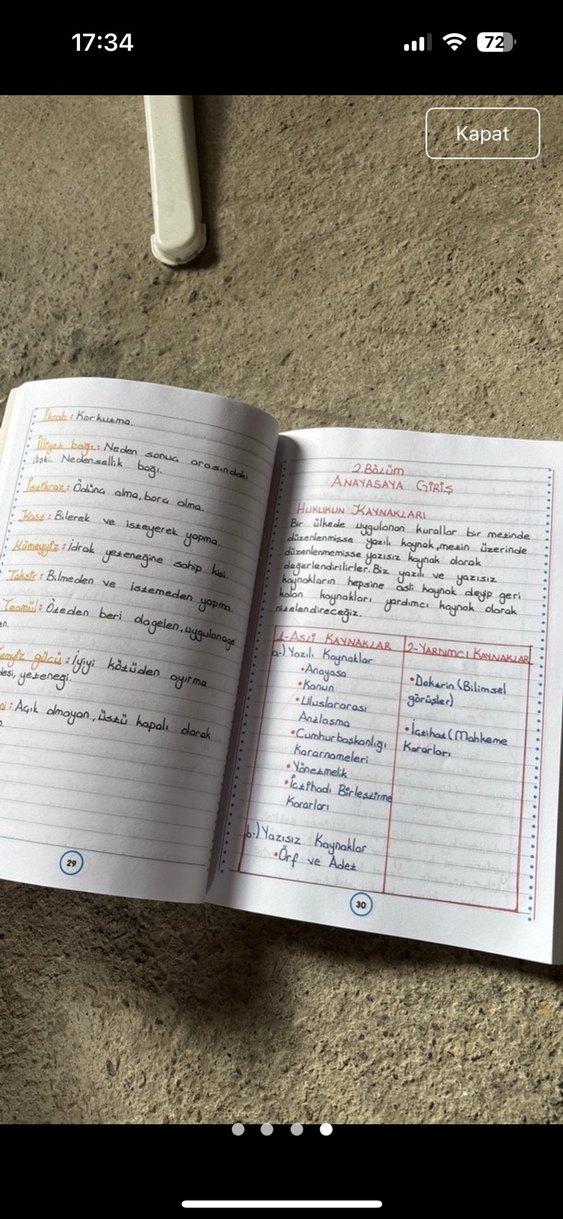 17:34
72
Kapat
İkrah: Korkutma.
İlliyet bağı: Neden sonuç arasındaki
ilişki. Nedensellik bağı.
İstikraz: Ödünç alma, borç alma.
Kast: Bilerek ve isteyerek yapma.
Mümeyyiz: İdrak yeteneğine sahip kişi.
Taksir: Bilmeden ve istemeden yapma.
Teamül: Öteden beri olagelen, uygulanage
en.
emyiz gücü: İyiyi kötüden ayırma
desi, yeteneği.
ni: Açık olmayan, üstü kapalı olarak
29
2.Bölüm
ANAYASAYA GİRİŞ
HUKUKUN KAYNAKLARI
Bir ülkede uygulanan kurallar bir metinde
düzenlenmisse yazılı kaynak, metin üzerinde
düzenlenmemisse yazısız kaynak olarak
değerlendirilirler. Biz yazılı ve yazısız
kaynakların hepsine asli kaynak deyip geri
kalan kaynakları yardımcı kaynak olarak
nitelendireceğiz.
1-ASLİ KAYNAKLAR
a-) Yazılı Kaynaklar
•Anayasa
•Kanun
•Uluslararası
Antlaşma
•Cumhurbaşkanlığı
Kararnameleri
•Yönetmelik
•İçtihadı Birleştirme
Kararları
b-) Yazısız Kaynaklar
•Örf ve Adet
2-YARDIMCI KAYNAKLAR
•Doktrin (Bilimsel
görüşler)
•İçtihat (Mahkeme
Kararları
30